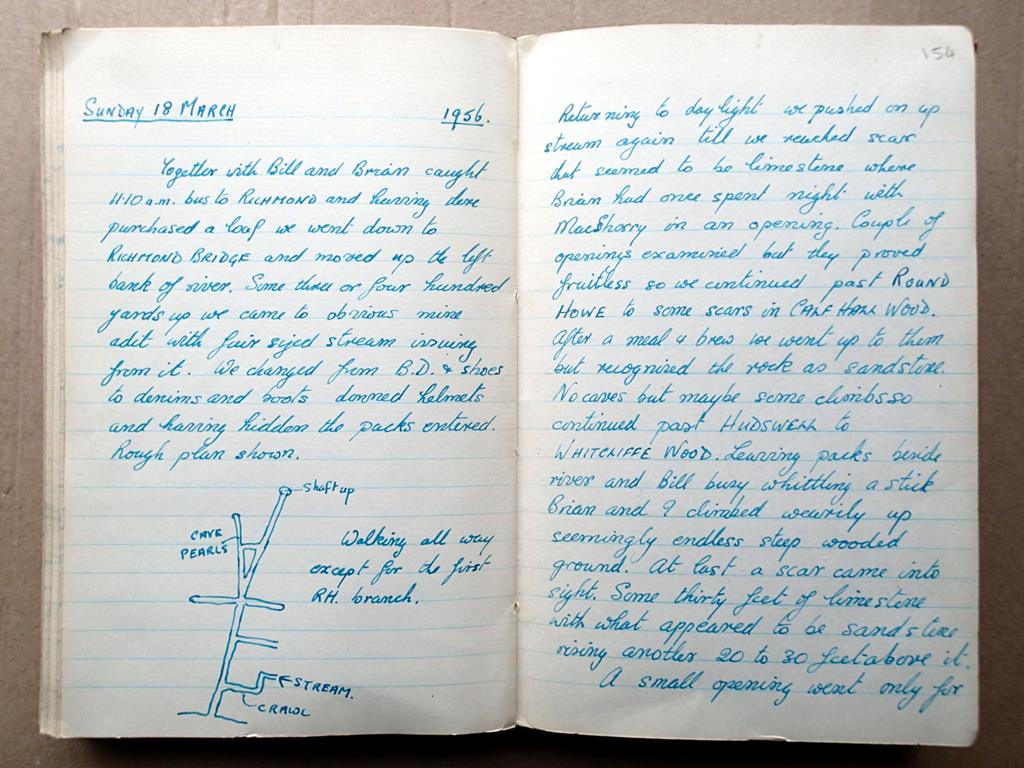 SUNDAY 18 MARCH 1956.
Together with Bill and Brian caught
11.10 a.m. bus to RICHMOND and having there
purchased a loaf we went down to
RICHMOND BRIDGE and moved up the left
bank of river. Some three or four hundred
yards up we came to obvious mine
adit with fair sized stream issuing
from it. We changed from B.D. & shoes
to denims and boots donned helmets
and having hidden the packs entered.
Rough plan shown.
Shaft up
CAVE
PEARLS
Walking all way
except for the first
RH. branch.
STREAM.
CRAWL
154
Returning to daylight we pushed on up
stream again till we reached scar
that seemed to be limestone where
Brian had once spent night with
MacShorry in an opening. Couple of
openings examined but they proved
fruitless so we continued past ROUND
HOWE to some scars in CALF HALL WOOD.
After a meal & brew we went up to them
but recognized the rock as sandstone.
No caves but maybe some climbs so
continued past HUDSWELL to
WHITCLIFFE WOOD. Leaving packs beside
river and Bill busy whittling a stick
Brian and I climbed wearily up
seemingly endless steep wooded
ground. At last a scar came into
sight. Some thirty feet of limestone
with what appeared to be sandstone
rising another 20 to 30 feet above it.
A small opening went only for